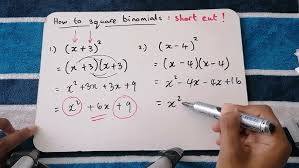 How to square binomials: short cut!
1) (x + 3)²
= (x + 3)(x + 3)
= x² + 3x + 3x + 9
= x² + 6x + 9
2) (x - 4)²
= (x - 4)(x - 4)
= x² - 4x - 4x + 16
= x²